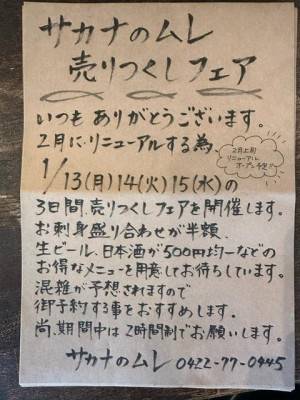 サカナのムレ
売りつくしフェア
いつもありがとうございます。
2月にリニューアルする為、
2月上旬
リニューアル
オープン予定!!
1/13(月)14(火)15(水)の
3日間、売りつくしフェアを開催します。
お刺身盛り合わせが半額、
生ビール、日本酒が500円均一などの
お得なメニューを用意してお待ちしています。
混雑が予想されますので
御予約する事をおすすめします。
尚、期間中は2時間制でお願いします。
サカナのムレ 0422-77-0445